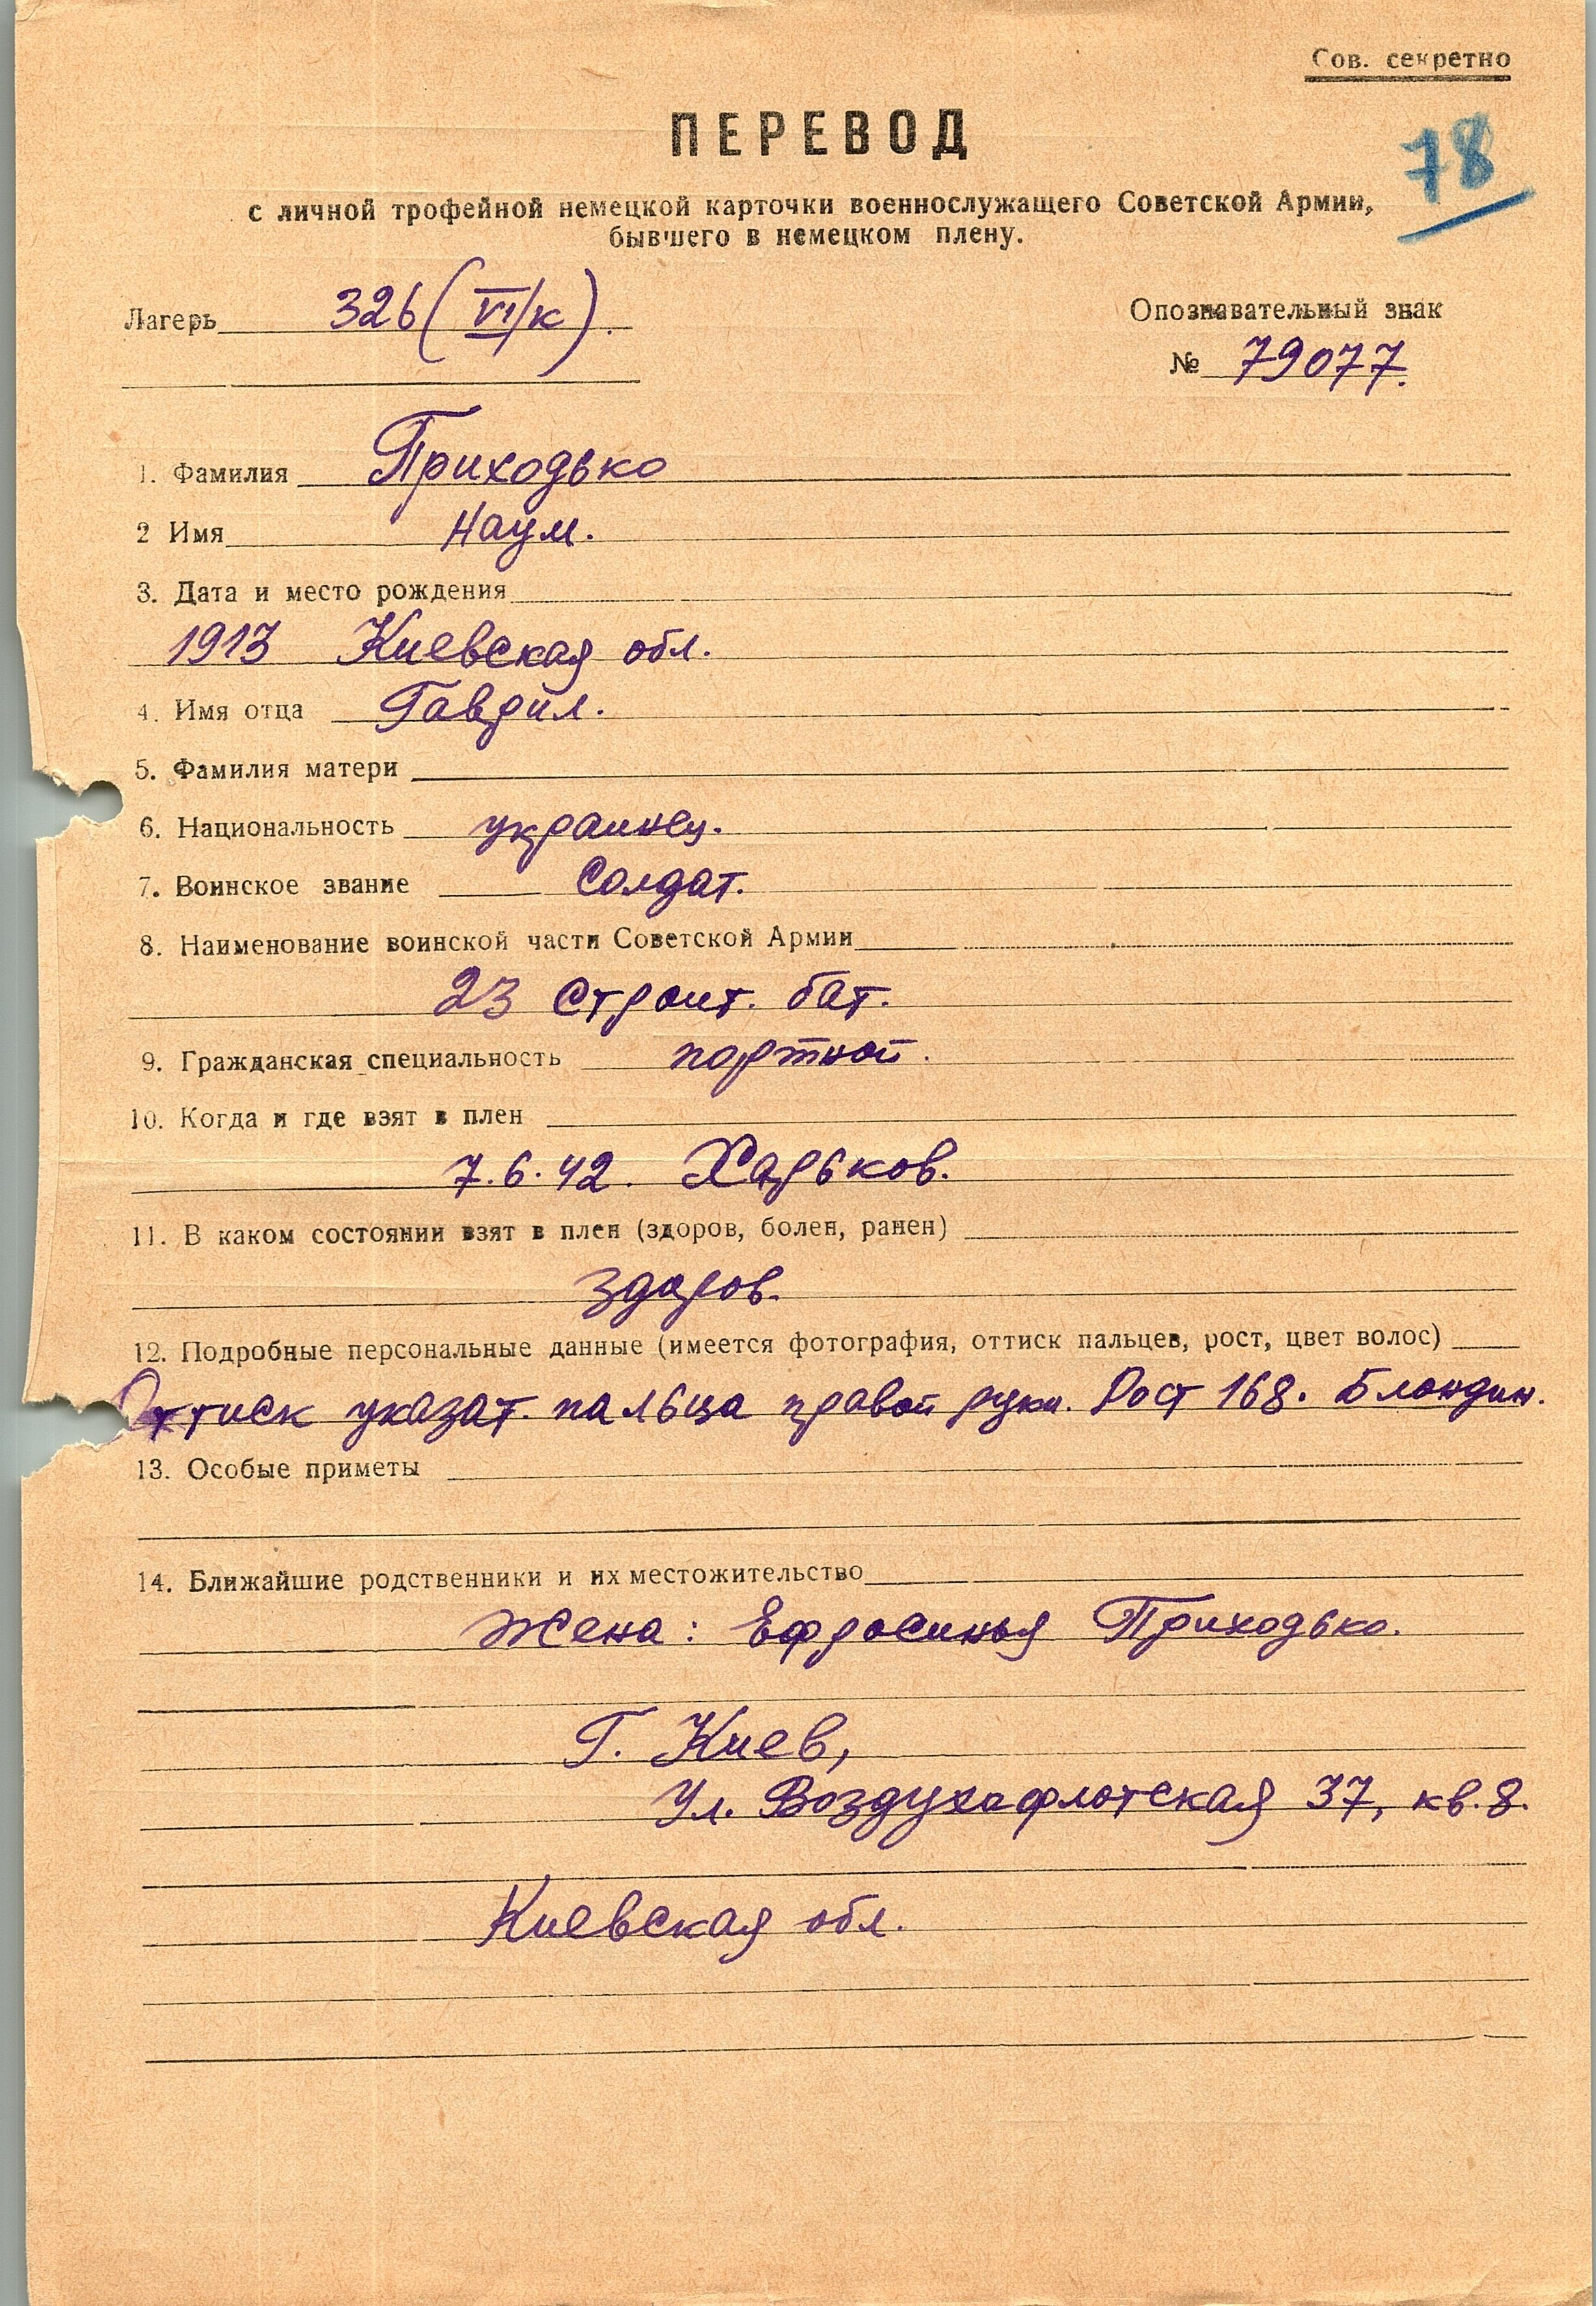 Сов. секретно
ПЕРЕВОД
78
с личной трофейной немецкой карточки военнослужащего Советской Армии,
бывшего в немецком плену.
Лагерь 326 (VI/к).
Опознавательный знак
№ 79077.
1. Фамилия Приходько
2 Имя Наум.
3. Дата и место рождения
1913 Киевская обл.
4. Имя отца Гаврил.
5. Фамилия матери
6. Национальность украинец.
7. Воинское звание Солдат.
8. Наименование воинской части Советской Армии
23 строит. бат.
9. Гражданская специальность портной.
10. Когда и где взят в плен
7.6.42. Харьков.
11. В каком состоянии взят в плен (здоров, болен, ранен)
здоров.
12. Подробные персональные данные (имеется фотография, оттиск пальцев, рост, цвет волос)
Оттиск указат. пальца правой руки. Рост 168. Блондин.
13. Особые приметы
14. Ближайшие родственники и их местожительство
Жена: Ефросинья Приходько.
Г. Киев,
Ул. Воздухафлотская 37, кв. 8.
Киевская обл.